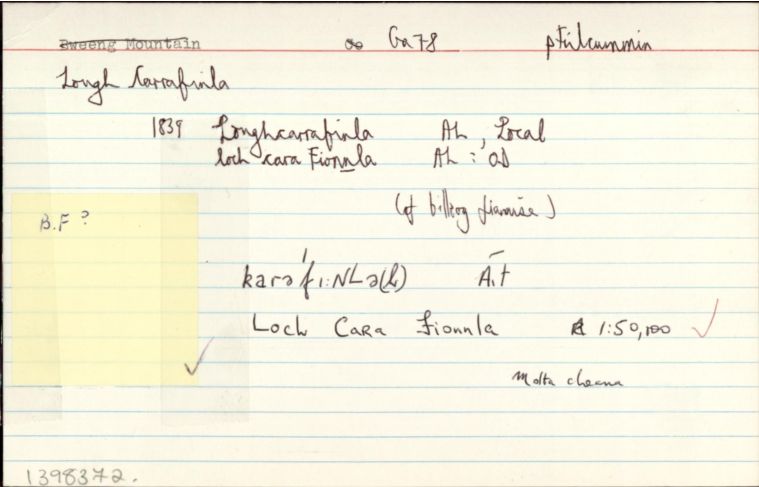 Bweeng Mountain Ga 78 p Fúilcummin
Lough Carrafinla
1839 Loughcarrafinla AL, Local
loch cara Fionnla AL : OD
(cf
B.F ?
karə'fi:NLə(h) Á.t
Loch Cara Fionnla 1:50,000 ✓
✓
Molta cheana
1398372.